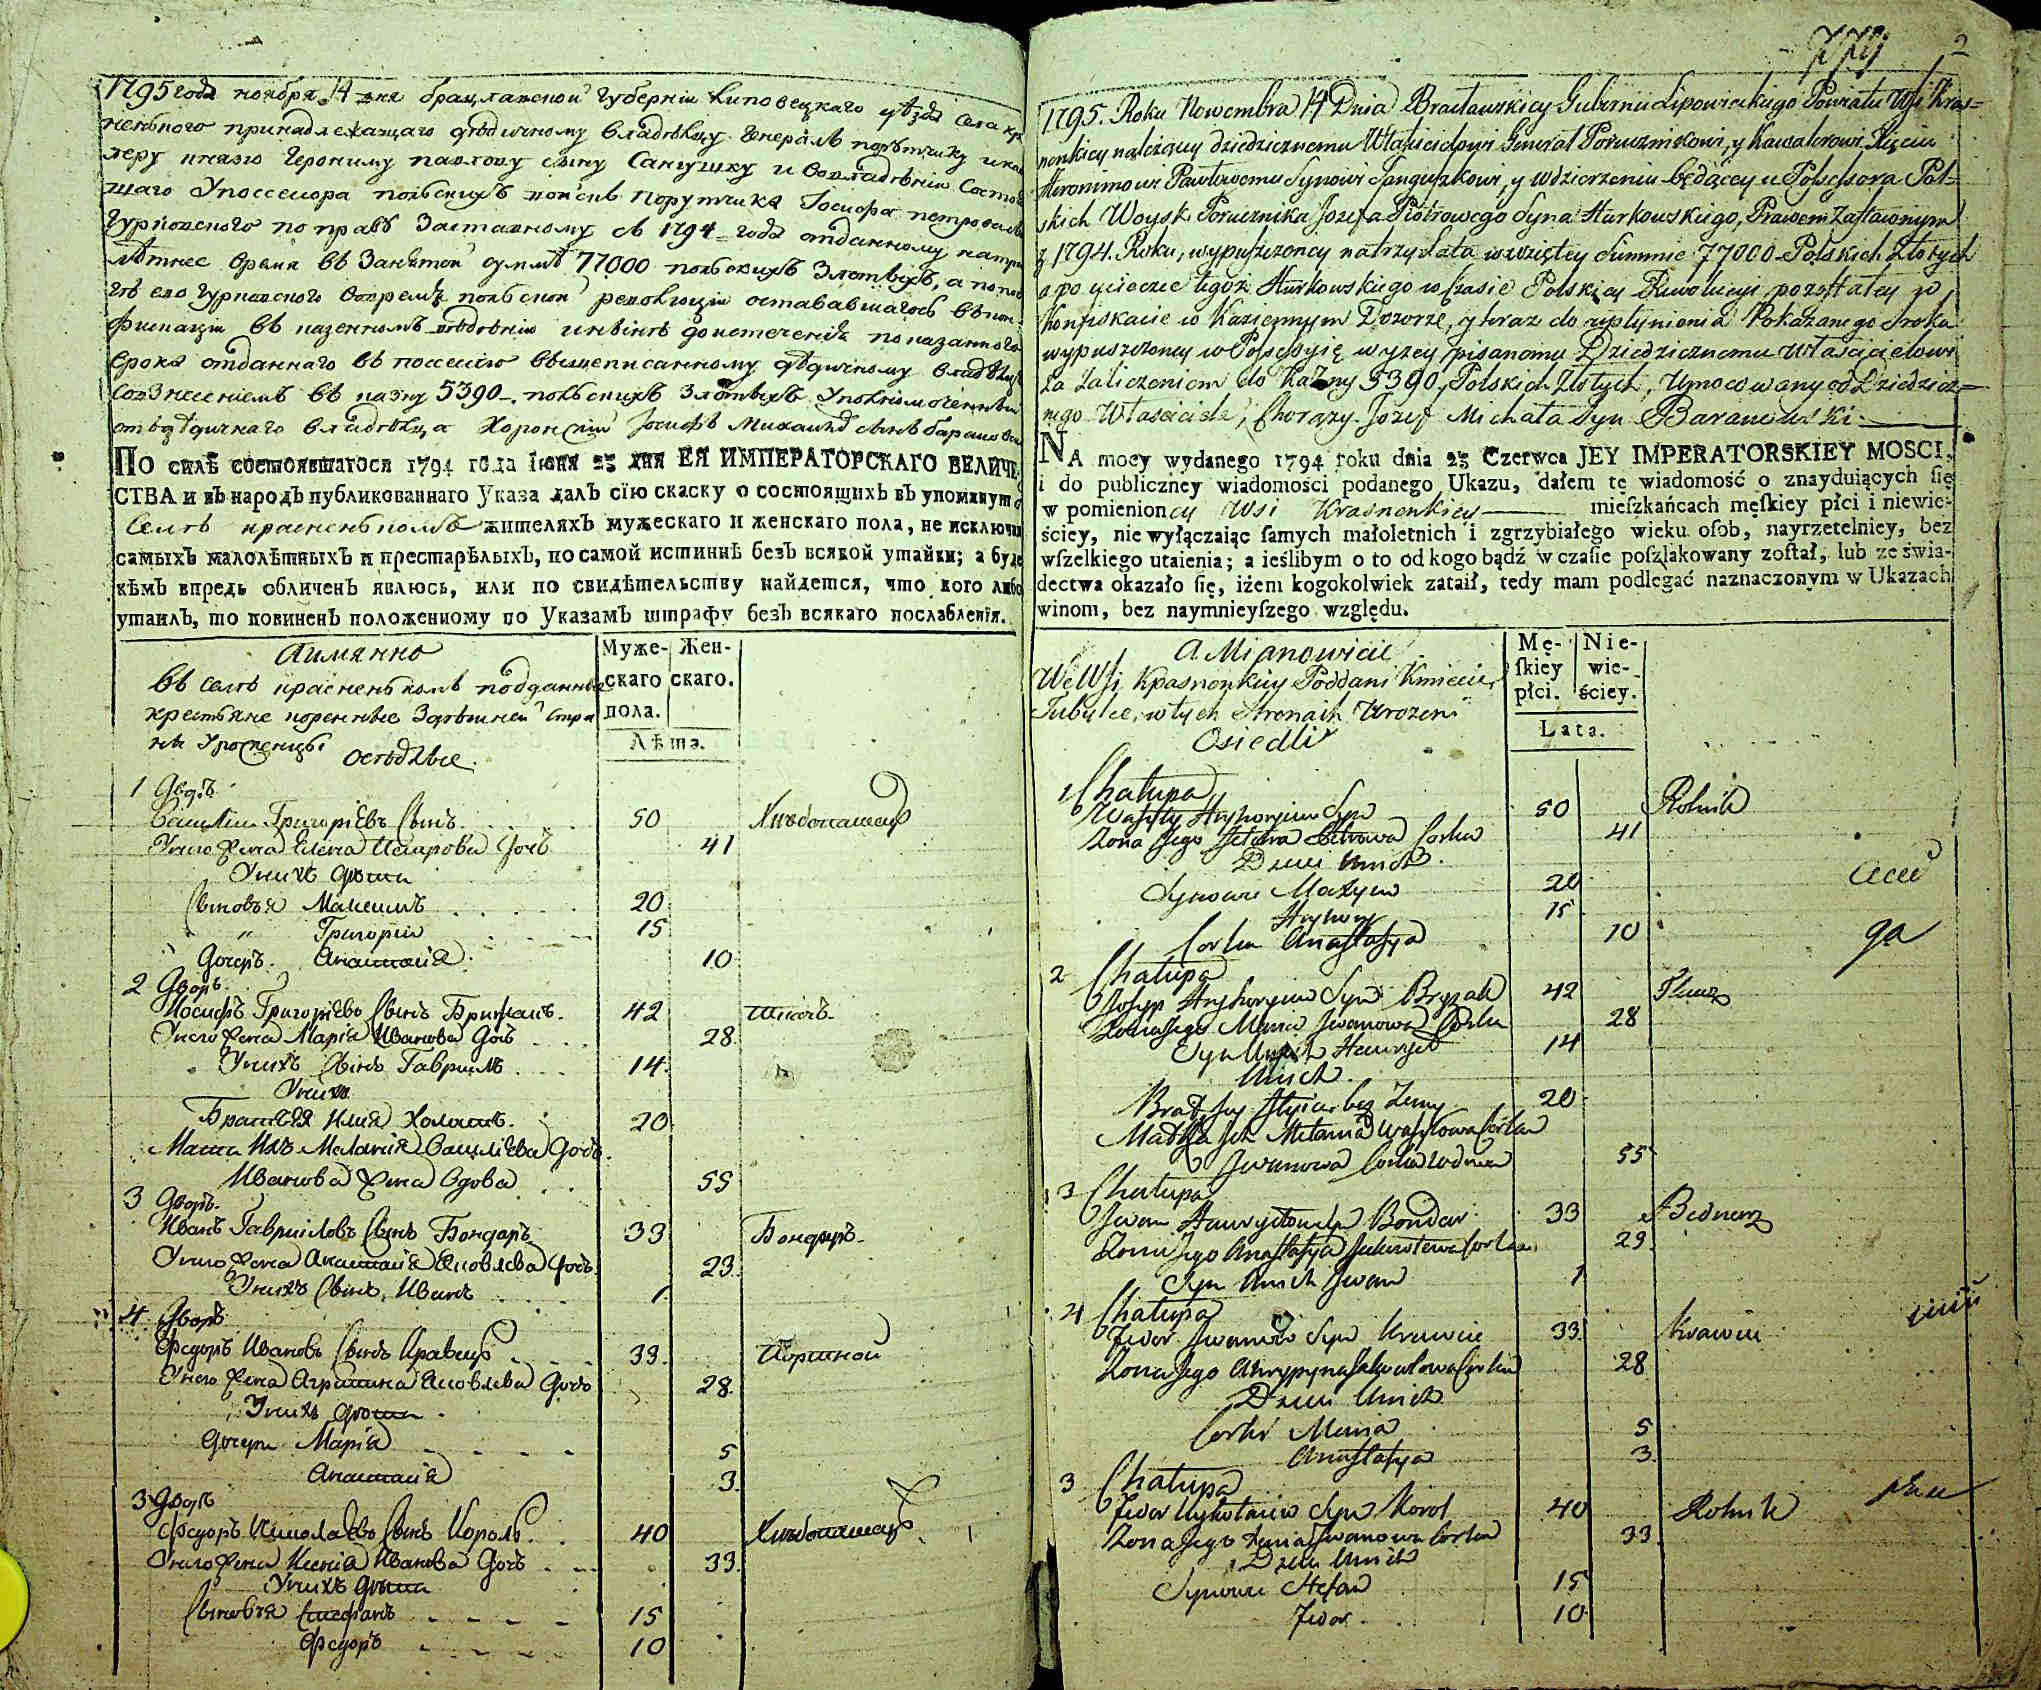 1795 года ноября 14 дня брацлавской губерніи липовецкаго уѣзда села кра
ненького принадлежащаго дѣдичному владѣльцу Генералъ порутчику и кава
леру князю Герониму павлову сыну Сангушку и во владѣніи Состоя
щаго У поссесора польскихъ войскъ порутчика Іосифа петрова сына
Гурковского по правѣ Заставному съ 1794 года отданному на три
лѣтнее время въ Занятой суммѣ 77000 польскихъ Злотыхъ, а по
его Гурковского вовремя польской революціи оставшагось въ кон
фискаціи въ казенномъ инынѣ до истеченія показанного
Срока отданнаго въ поссесію вышеписанному дѣдичному владѣльцу
Сознесеніемъ въ казну 5390 польскихъ Злотыхъ Уполномоченный
отъ дѣдичнаго владѣльца Хоронжій Іосифъ Михаила сынъ Барановский
ПО силѣ состоявшагося 1794 года Іюня 23 дня ЕЯ ИМПЕРАТОРСКАГО ВЕЛИЧЕ
СТВА и въ народъ публикованнаго Указа далъ сїю скаску о состоящихъ въ упомянут
Селѣ красненькомъ жителяхъ мужескаго и женскаго пола, не исключая
самыхъ малолѣтныхъ и престарѣлыхъ, по самой истиннѣ безъ всякой утайки; а буде
кѣмъ впредь обличенъ явлюсь, или по свидѣтельству найдется, что кого либо
утаилъ, то повиненъ положенному по Указамъ штрафу безъ всякаго послабленїя.
Аимянно
въ селѣ красненькомъ подданные
крестьяне коренные Здѣшней стра
ны Уроженцы
Осѣдлые
Муже- Жен-
скаго скаго.
пола.
Лѣта.
1 Дворъ
Василій Григоріевъ Сынъ 50 Хлѣбопашецъ
Унего жена Елена Дочь 41
Унихъ дѣти
Сыновья Максимъ 20
" Григорій 15
Дочерь Анастасія 10
2 Дворъ
Иосифъ Григоріевъ Сынъ 42 Ткачъ
Унего жена Марія Иванова Дочь 28
Унихъ Сынъ Гаврила 14
Унихъ
Братья Илія Холостъ 20
Матка ихъ Меланія Василіева Дочь
Иванова жена Вдова 55
3 Дворъ
Иванъ Гавриловъ Сынъ Бондаръ 33 Бондаръ
Унего жена Анастасія Яковлева Дочь 23
Унихъ Сынъ Иванъ 1
4 Дворъ
Федоръ Ивановъ Сынъ Кравецъ 33 Портной
Унего жена Агрипина Яковлева Дочь 28
Унихъ дѣти
Дочери Марія 5
Анастасія 3
3 Дворъ
Федоръ Николаевъ Сынъ Король 40 Хлѣбопашецъ
Унего жена Ксенія Иванова Дочь 33
Унихъ дѣти
Сыновья Стефанъ 15
Федоръ 10
2
1795. Roku Nowembra 14 Dnia Bracławskiey Gubernii Lipowieckiego Powiatu Wsi Kras=
nenkiey należącey dziedzicznemu Właścicielowi Generał Porucznikowi, y Kawalerowi Xięciu
Heronimowi Pawłowemu Synowi Sanguszkowi, y wdzierżeniu będącey u Possesora Pol-
skich Woysk Porucznika Jozefa Piotrowego Syna Hurkowskiego, Prawem Zastawnym
z 1794. Roku, wypuszczoney natrzy Lata wwziętey Summie 77000 Polskich Złotych
a po ucieczce tegoż Hurkowskiego w Czasie Polskiey Rewolucyi pozostałey w
Konfiskacie w Kaziennym Dozorze, y teraz do upłynienia Pokazanego Sroka
wypuszczoney w Possessyię wyzey pisanemu Dziedzicznemu Właścicielowi
za Zaliczeniem do Kazny 5390, Polskich Złotych, Umocowany od Dziedzicz=
nego Właściciela, Chorąży Jozef Michała Syn Baranowski
NA mocy wydanego 1794 roku dnia 23 Czerwca JEY IMPERATORSKIEY MOSCI,
i do publiczney wiadomości podanego Ukazu, dałem tę wiadomość o znayduiących się
w pomienioney Wsi Krasnenkiey mieſzkańcach męſkiey płci i niewie-
ściey, nie wyłączaiąc ſamych małoletnich i zgrzybiałego wieku oſob, nayrzetelniey, bez
wſzelkiego utaienia; a ieślibym o to od kogo bądź w czaſie poſzlakowany zoſtał, lub ze świa-
dectwa okazało ſię, iżem kogokolwiek zataił, tedy mam podlegać naznaczonym w Ukazach
winom, bez naymnieyſzego względu.
A Mianowicie
We Wsi Krasnenkiey Poddani Kmiecie
Tubylce, wtych Stronach Urozeni
Osiedli
Mę- Nie-
ſkiey wie-
płci. ściey.
Lata.
1 Chałupa
Wasyly Hryhoryiew Syn 50 Rolnik
Zona Jego Corka 41
Dzieci Unich
Synowie Maxym 20
Hryhory 15
Corka Anastasya 10
2 Chałupa
Josyp Hryhoryiew Syn 42 Tkacz
Zona Jego Maria Iwanowa Corka 28
Syn Unich Hawryło 14
Unich
Brat bez Zony 20
Matka Jch Melania Wasylowa Corka
Iwanowa wdowa 55
3 Chałupa
Iwan Bondar 33 Bednarz
Zona Jego Anastasya Corka 29
Syn Unich Iwan 1
4 Chałupa
Fedor Iwanow Syn Krawiec 33 Krawiec
Zona Jego Corka 28
Dzieci Unich
Corki Maria 5
Anastasya 3
3 Chałupa
Fedor Mykołaiew Syn Korol 40 Rolnik
Zona Jego Xenia Iwanowa Corka 33
Dzieci Unich
Synowie Stefan 15
Fedor 10